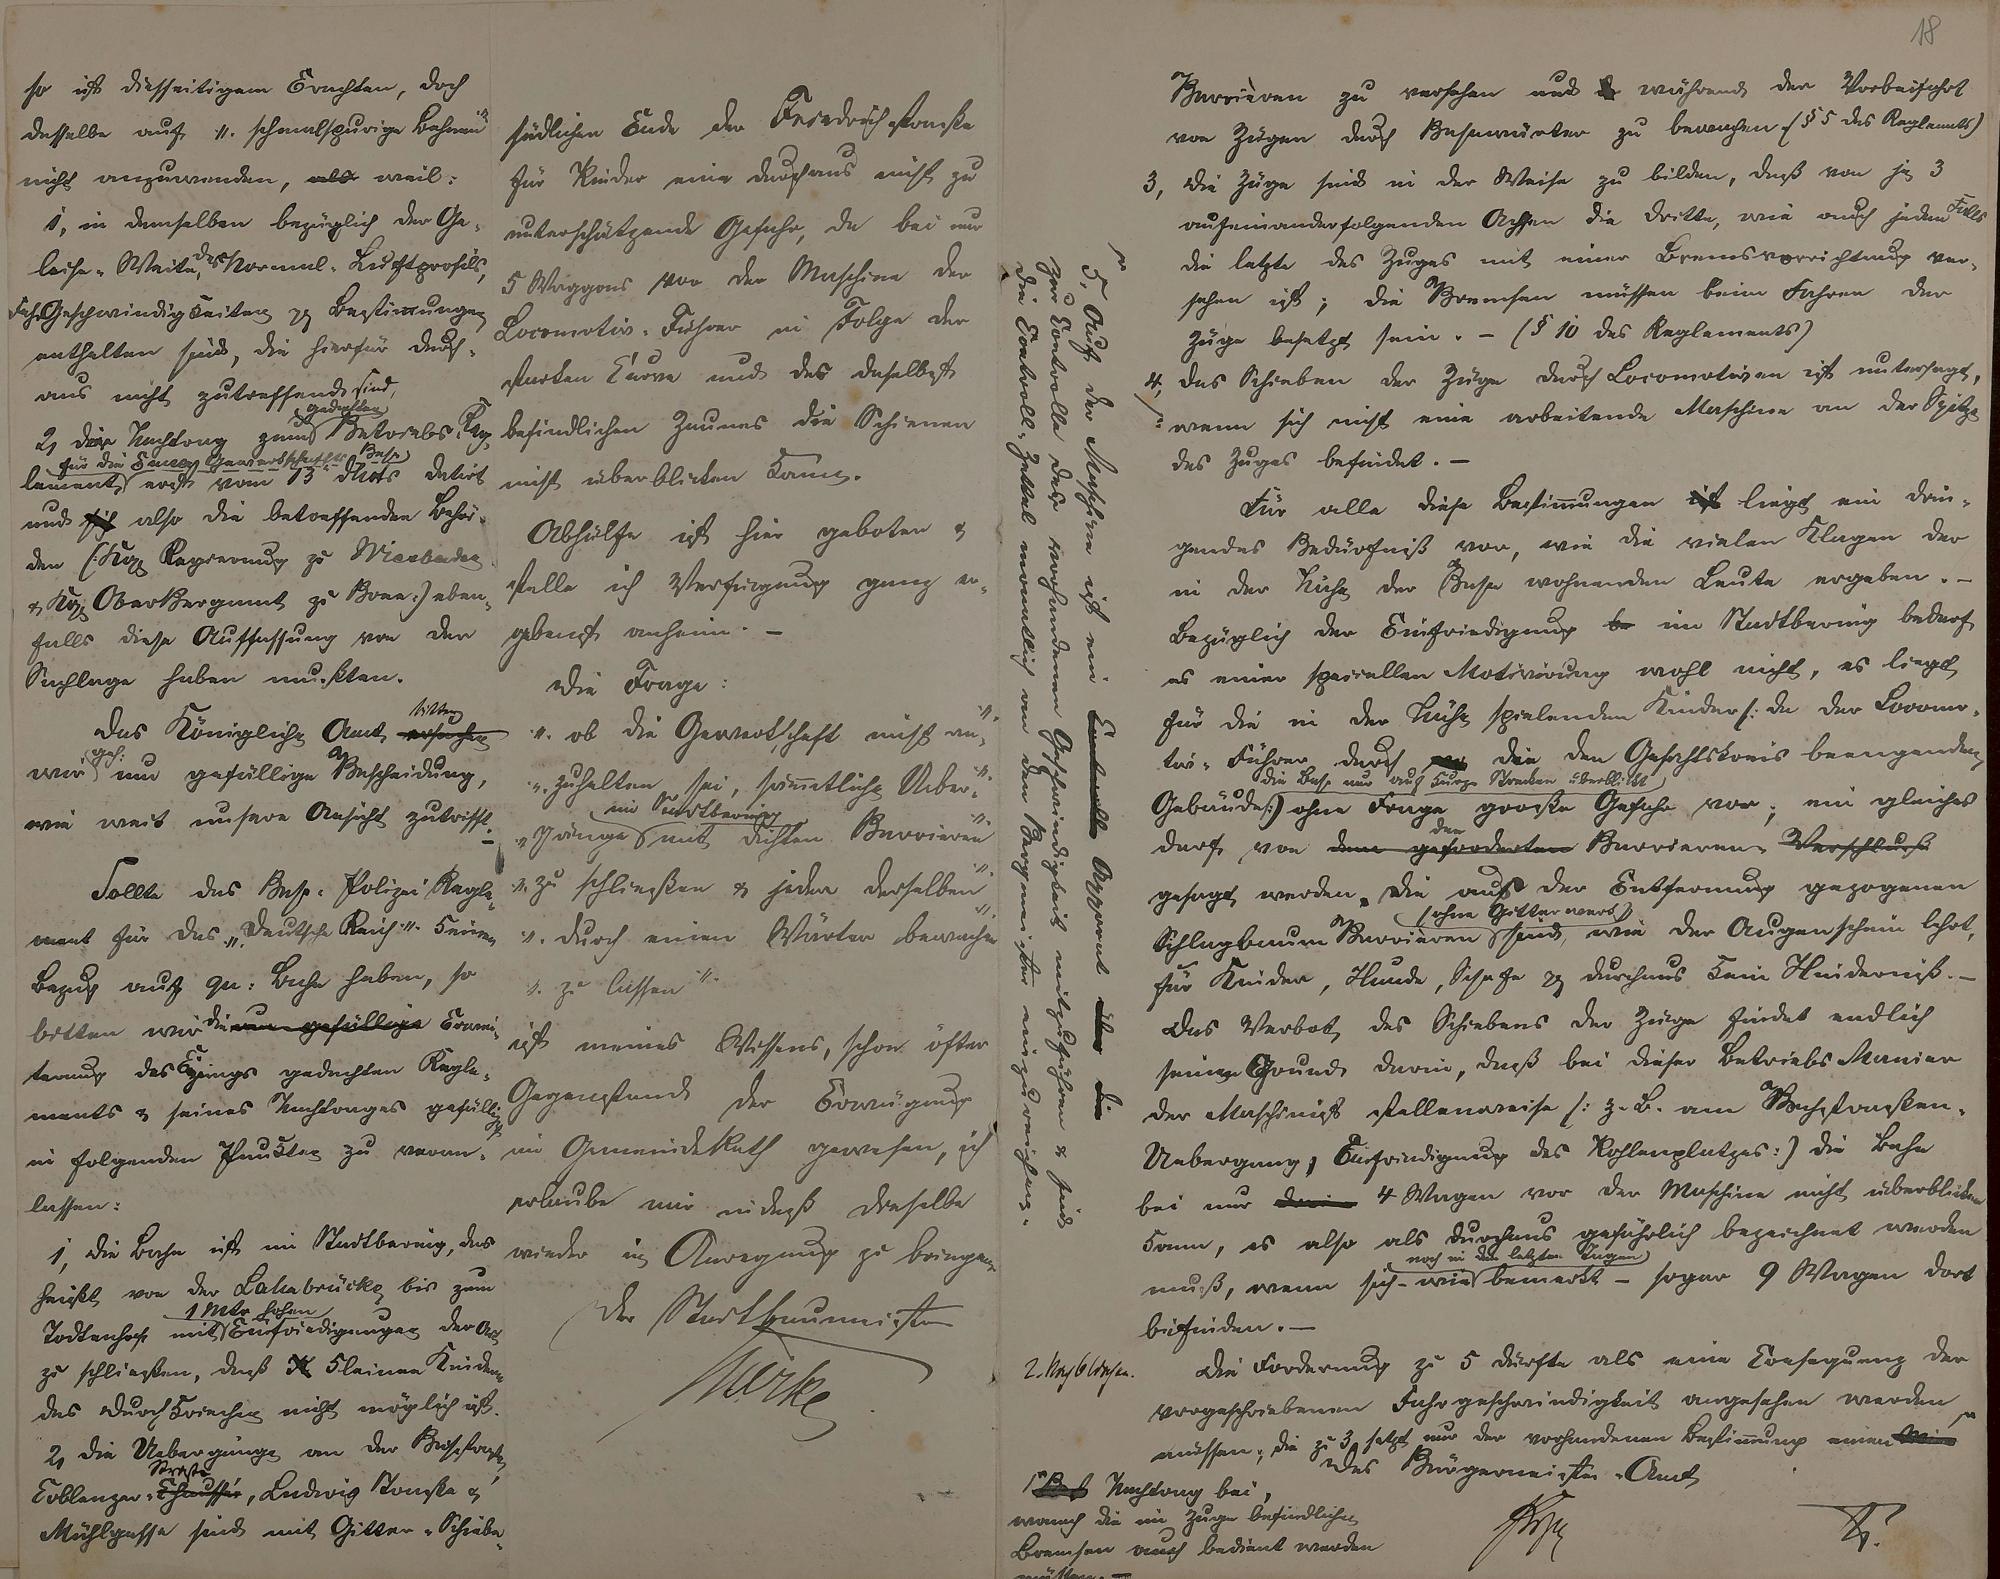 18
so ist diesseitigem Erachten, doch
desselbe auf "schmalspurige Bahnen"
nicht anzuwenden, als weil:
1, in demselben bezüglich der Ge-
leise-Weite, des Normal-Luftprofils,
Fahr Geschwindigkeiten pp Bestimmungen
enthalten sind, die hierfür durch-
aus nicht zutreffend sind,
2, der Nachtrag zum gedachten Betriebs Reg-
lement für die Emser Gewerkschafts Bahn erst vom 13 d Mts datirt
und sich also die betreffenden Behör-
den (: Kgl Regierung zu Wiesbaden
& Kgl Oberbergamt zu Bonn :) eben-
falls diese Auffassung von der
Sachlage haben mußten.
Das Königliche Amt ersuchen bitten
wir geh: um gefällige Bescheidung,
wie weit unsere Ansicht zutrifft.
Sollte das Bahn-Polizei Regle-
ment für das "Deutsche Reich" keinen
Bezug auf qu: Bahn haben, so
bitten wir die um gefällige Erwei-
terung des Eingangs gedachten Regle-
ments & seines Nachtrages gefälligst
in folgenden Punkten zu veran-
lassen:
1, die Bahn ist im Stadtbering, das
heißt von der Lahnbrücke bis zum
Todtenhof mit 1 Mtr hohen Einfriedigungen der Art
zu schließen, daß K kleinen Kindern
das Durchkriechen nicht möglich ist.
2, die Uebergänge an der Bahnstraße,
Coblenzer-Chaussée Straße, Ludwig Straße &
Mühlgasse sind mit Gitter-Schiebe-
südlichen Ende der Friedrichstraße
für Kinder eine durchaus nicht zu
unterschätzende Gefahr, da bei nur
5 Waggons vor der Maschine der
Locomotiv-Führer in Folge der
starken Curve und des daselbst
befindlichen Zaunes die Schienen
nicht überblicken kann.
Abhülfe ist hier geboten &
stelle ich Verfügung ganz er-
gebenst anheim. –
Die Frage:
"ob die Gewerkschaft nicht an-"
"zuhalten sei, sämmtliche Ueber-"
"gänge im Stadtbering mit dichten Barrieren"
"zu schließen & jeden derselben"
"durch einen Wärter bewachen"
"zu lassen"
ist meines Wissens, schon öfter
Gegenstand der Erwägung
im GemeindeRath gewesen, ich
erlaube mir indeß dieselbe
wieder in Anregung zu bringen
Der Stadtbaumeister
5, Auf der Maschine ist ein Controlle Apparat über die
zur Controlle der vorhandenen Geschwindigkeit mitzuführen & sind
die Controll-Zettel monatlich an den Bürgermeister einzureichen.
Barrièren zu versehen und während der Vorbeifahrt
von Zügen durch Bahnwärter zu bewachen. (§ 5 des Reglements)
3, die Züge sind in der Weise zu bilden, daß von je 3
aufeinanderfolgenden Achsen die dritte, wie auch jeden Falls
die letzte des Zuges mit einer Bremsvorrichtung ver-
sehen ist; die Bremsen müssen beim Fahren der
Züge besetzt sein. – (§ 10 des Reglements)
4, das Schieben der Züge durch Locomotiven ist untersagt,
wenn sich nicht eine arbeitende Maschine an der Spitze
des Zuges befindet. –
Für alle diese Bestimmungen ist liegt ein drin-
gendes Bedürfniß vor, wie die vielen Klagen der
in der Nähe der Bahn wohnenden Leute ergeben. –
Bezüglich der Einfriedigung be im Stadtbering bedarf
es einer speciellen Motivirung wohl nicht, es liegt
für die in der Nähe spielenden Kinder (: da der Locomo-
tiv-Führer durch die den Gesichtskreis beengenden
Gebäude die Bahn nur auf kurze Strecken überblickt :) ohne Frage große Gefahr vor; ein gleiches
darf von dem geforderten den Barrieren Verschluß
gesagt werden. Die aus der Entfernung gezogenen
Schlagbaum Barrièren (ohne Gitterwerk) sind, wie der Augenschein lehrt,
für Kinder, Hunde, Schafe pp durchaus kein Hinderniß. –
Das Verbot des Schiebens der Züge findet endlich
seinen Grund darin, daß bei dieser Betriebs Manier
der Maschinist stellenweise (: z. B. am Bahnstraßen-
Uebergang, Einfriedigung des Kohlenplatzes :) die Bahn
bei nur drei 4 Wagen vor der Maschine nicht überblicken
kann, es also als durchaus gefährlich bezeichnet werden
muß, wenn sich – wie noch in den letzten Tagen bemerkt – sogar 9 Wagen dort
befinden. –
Die Forderung zu 5 dürfte als eine Consequenz der
vorgeschriebenen Fahrgeschwindigkeit angesehen werden
müssen; die zu 3 setzt nur der vorhandenen Bestimmung einen
Das Bürgermeister-Amt
Nachtrag bei,
wonach die im Zuge befindlichen
Bremsen auch bedient werden
müssen. –